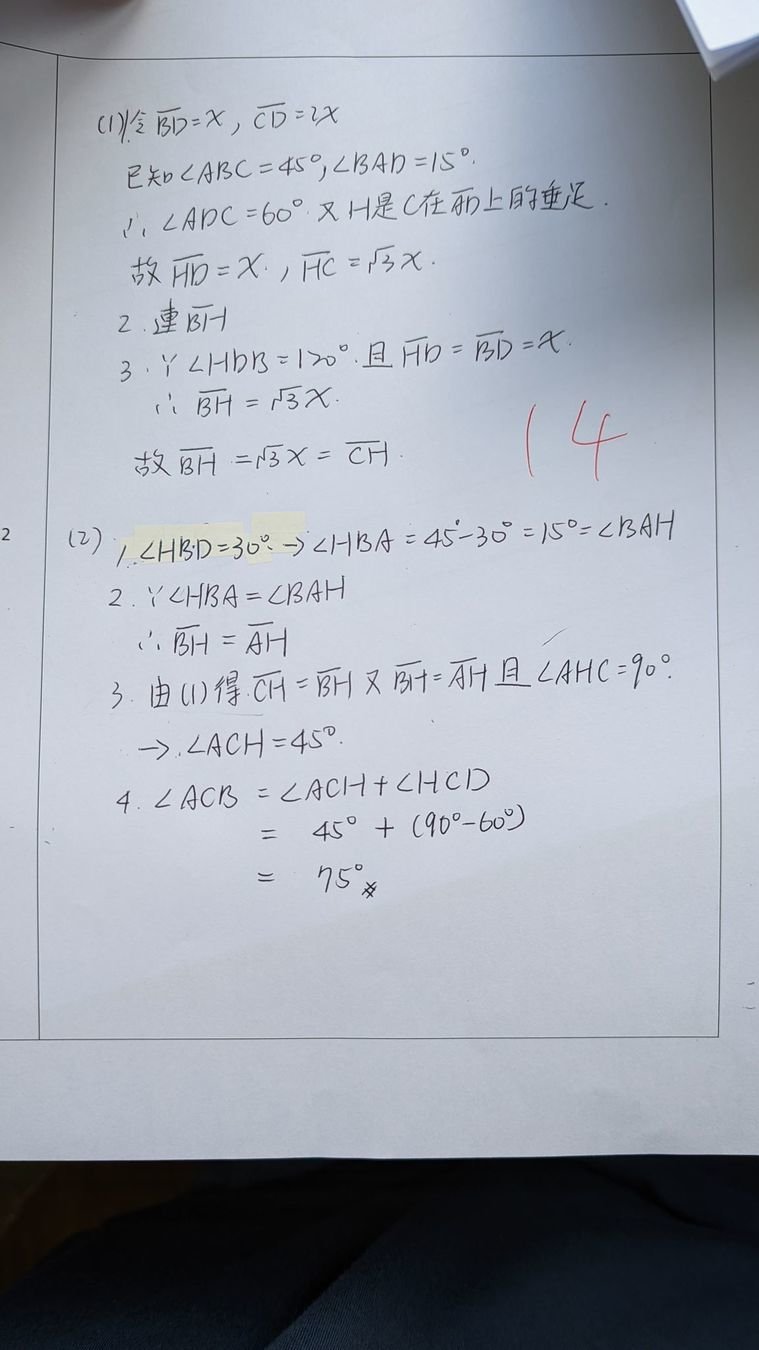 (1) 1. 令 B̅D̅=x, C̅D̅=2x
已知∠ABC=45°,∠BAD=15°.
∴ ∠ADC=60°. 又H是C在A̅D̅上的垂足.
故 H̅D̅=x., H̅C̅=√3x.
2. 連B̅H̅
3. ∵∠HDB=120°.且 H̅D̅=B̅D̅=x.
∴ B̅H̅=√3x.
故 B̅H̅=√3x=C̅H̅.
14
2
(2) 1. ∠HBD=30°. → ∠HBA=45°-30°=15°=∠BAH
2. ∵∠HBA=∠BAH
∴ B̅H̅=A̅H̅
3. 由(1)得.C̅H̅=B̅H̅ 又 B̅H̅=A̅H̅ 且 ∠AHC=90°.
→.∠ACH=45°.
4. ∠ACB = ∠ACH+∠HCD
= 45° + (90°-60°)
= 75°※